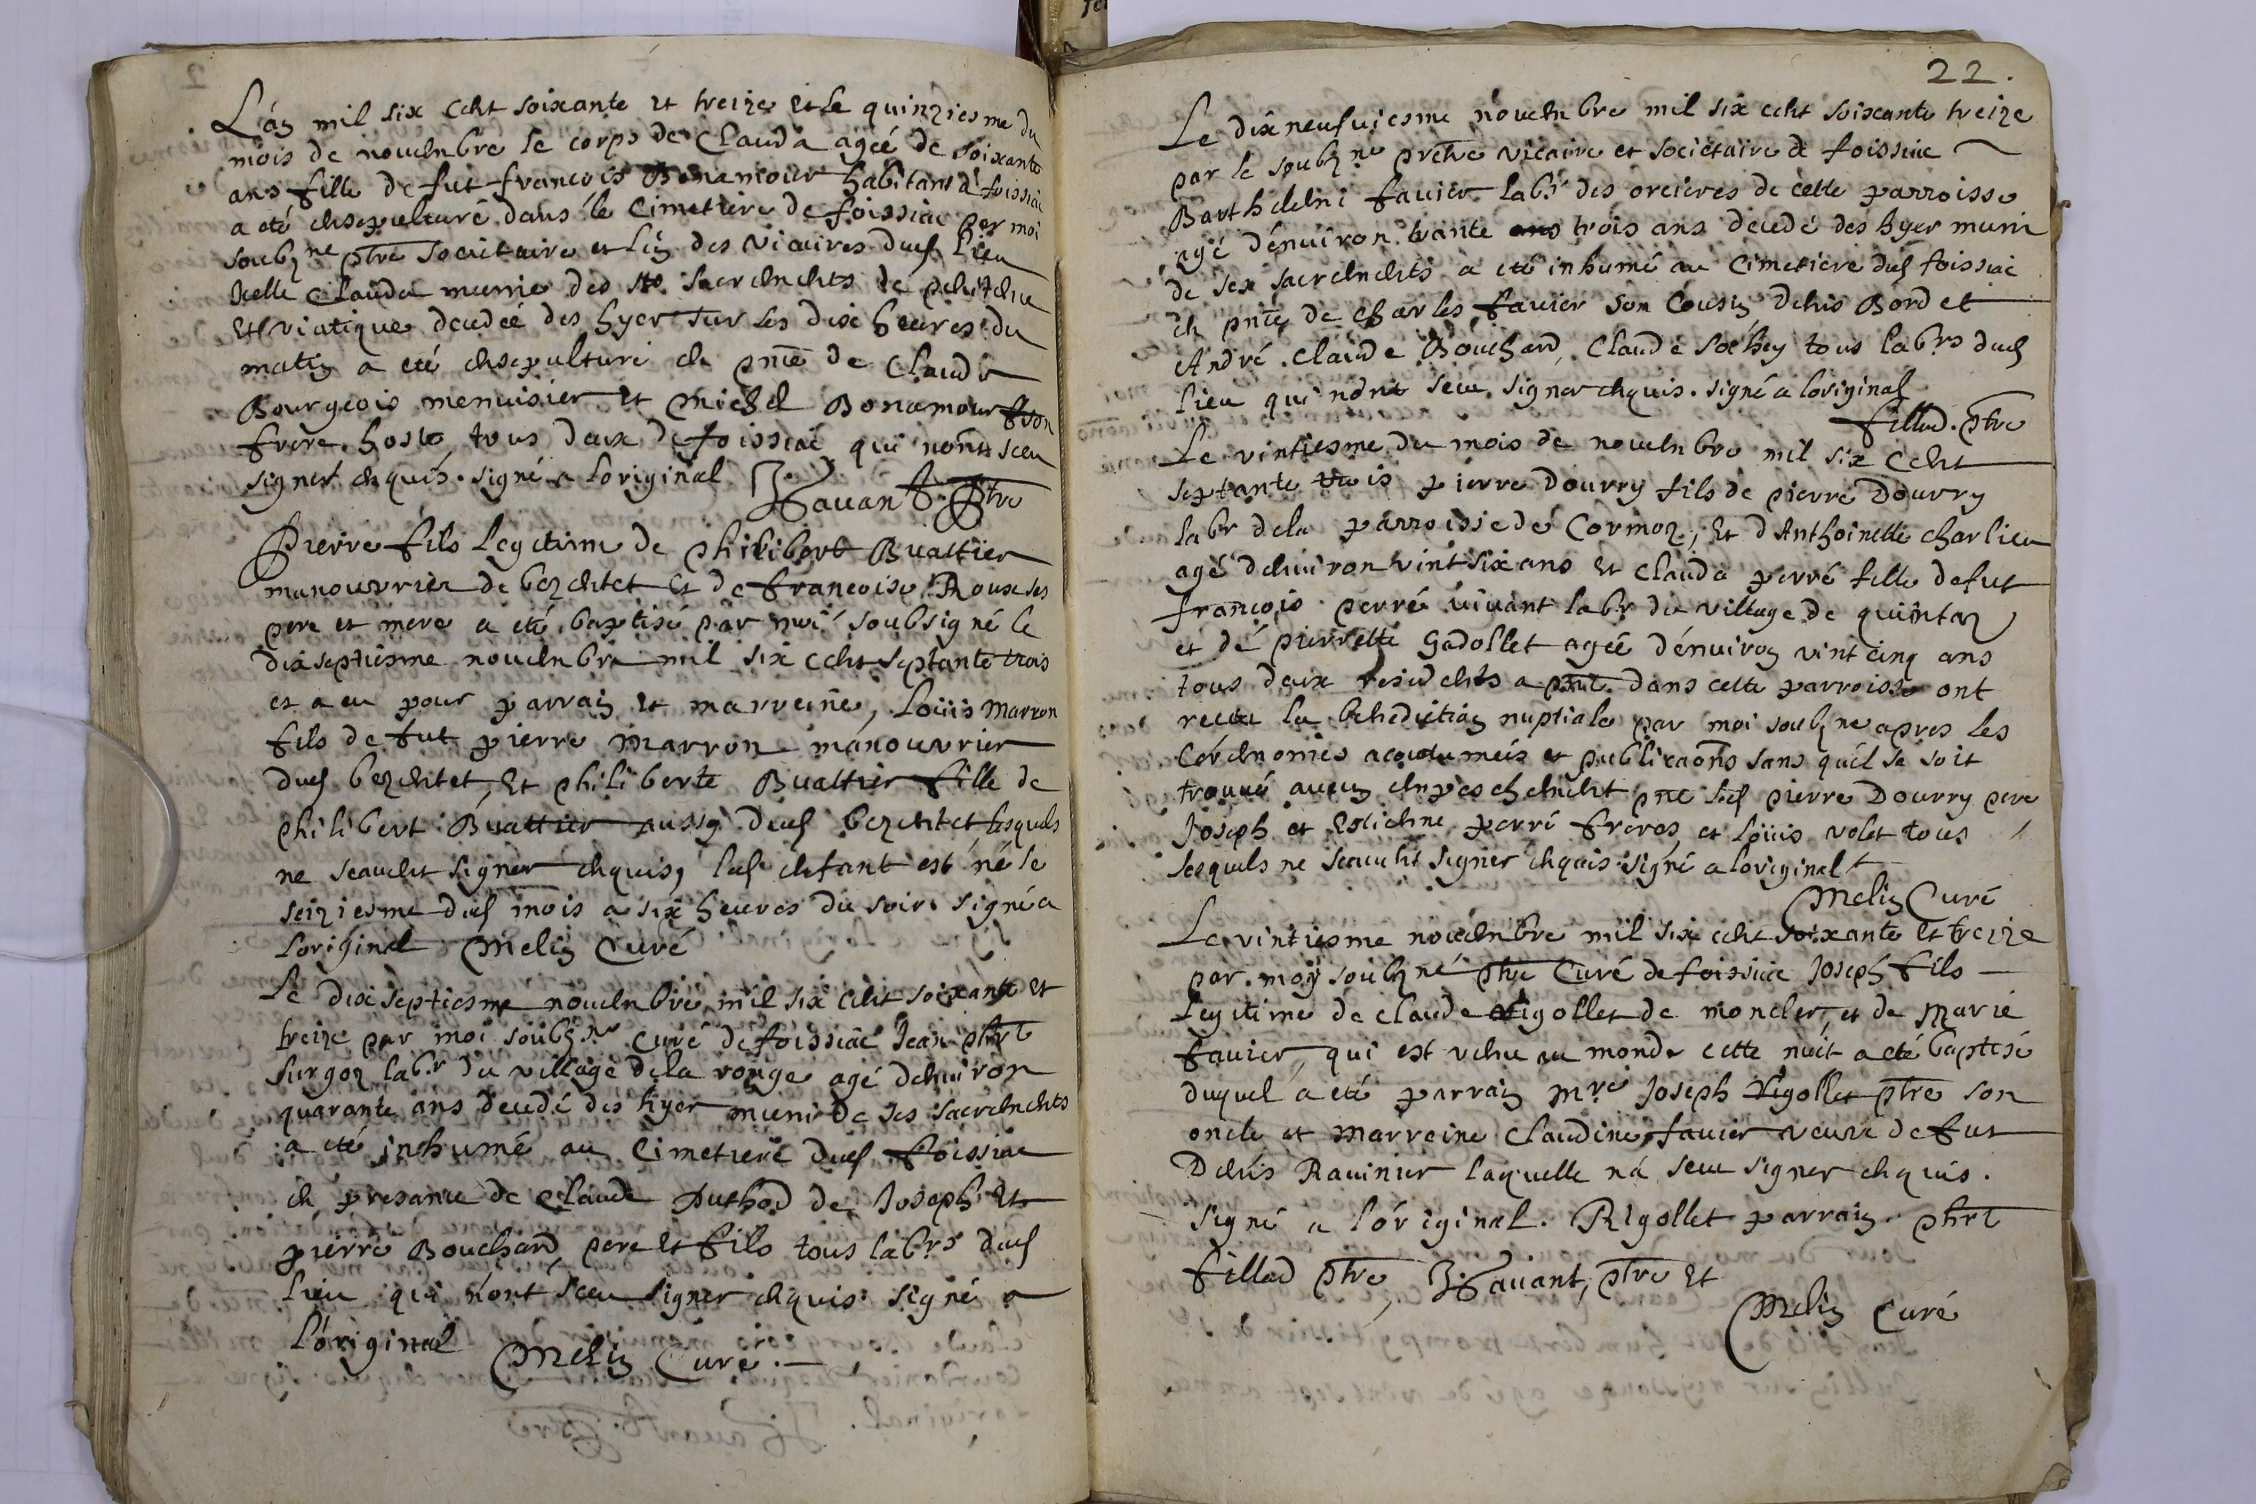 L'an mil six cent soixante et treize et le quinziesme du
mois de novembre le corps de Clauda agée de soixante
ans fille de fut francois Bonamour habitant a foissia
a eté ensepulturé dans le Cimetiere de foissiac par moi
soubz ne ptre Societaire et l'un des vicaires dud lieu
Icelle Clauda munie des sts sacrements de penitence
Et viatique decedée des hyer sur les dix heures du
matin a eté ensepulturé en pnce de Claude
Bourgeois menuisier et Michel Bonamour son
frere hoste tous deux de foissiac qui n'ont sceu
signer enquis. signé a l'original J. Gavant ptre
Pierre fils legitime de philibert Buattier
manouvrier de bezentet et de francoise Roux ses
pere et mere a eté baptisé par moi soubsigné le
dix septiesme novembre mil six cent septante trois
et a eu pour parrain et marreine, Loüis Marron
fils de fut pierre Marron manouvrier
dud bezentet, Et philiberte Buattier fille de
philibert Buattier aussy dud bezentet lesquels
ne scauent signer enquis, led enfant est né le
seiziesme dud mois a six heures du soir. signé a
l'original Melin Curé
Le dix septiesme novembre mil six cent soixante et
treize par moi soubz.né curé de foissiac Jean ptrt
Surgon lab.r du village de la rouge agé d'environ
quarante ans decedé des hyer muni de ses sacrements
a eté inhumé au Cimetiere dud foissiac
en presance de Claude Duthod de Joseph et
pierre Bouchard pere et fils tous lab.rs dud
lieu qui n'ont sceu signer enquis signé a
l'original Melin Curé.
22.
Le dix neufviesme novembre mil six cent soixante treize
par le soubz ne prêtre vicaire et societaire de foissiac
Barthelemi favier lab.r des orcieres de cette parroisse
agé d'environ trante ans trois ans decedé des hyer muni
de ses sacrements a eté inhumé au Cimetiere dud foissiac
en pnce de Charles favier son Cousin Denis Bordet
André Claude Bouchard, Claude Sochey tous lab.rs dud
lieu qui n'ont sceu signer enquis. signé a l'original
fillod. ptre
Le vintiesme du mois de novembre mil six Cent
septante trois pierre Dourry fils de pierre Dourry
labr de la parroisse de Cormoz, Et d'Anthoinette charlieu
agé d'environ vint six ans et Clauda perré fille de fut
françois perré vivant labr du village de quintan
et de pierrette Gadollet agée d'environ vint cinq ans
tous deux residents a pnt dans cette parroisse ont
receu la benediction nuptiale par moi soubz ne apres les
Ceremonies acoutumeés et publicaons sans quil se soit
trouvé aucun empeschement pnt led pierre Dourry pere
Joseph et Estienne perré freres et Loüis volet tous
lesquels ne scauent signer enquis signé a l'original
Melin Curé
Le vintiesme novembre mil six cent soixante et treize
par moy soubz né ptre Curé de foissiac Joseph fils
legitime de Claude Rigollet de moncler, et de Marie
favier, qui est venu au monde cette nuit a eté baptisé
duquel a eté parrain m.re Joseph Rigollet ptre son
oncle et marreine Claudine favier veuve de fut
Denis Ravinier laquelle n'a sceu signer enquis.
Signé a l'original. Rigollet parrain. ptrt
fillod ptre, J. Gavant, ptre et
Melin Curé